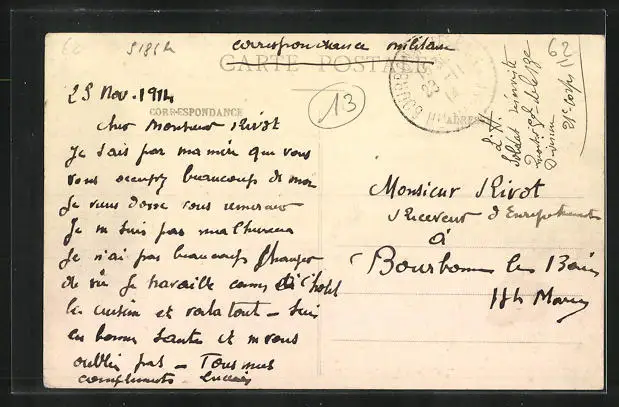 correspondance militaire
CARTE POSTALE
62
13
23 Nov. 1914
CORRESPONDANCE
Cher Monsieur Rivot
Je sais par ma mère que vous
vous occupez beaucoup de moi
Je vous donc vous remercier
Je ne suis pas malheureux
Je n'ai pas beaucoup changer
de vie Je travaille comme à l'hotel
la cuisine et voila tout - Suis
en bonne santé et ne vous
oublie pas - Tous mes
compliments Lucien
23 -11
14
Soldat
Division
21e corps
Monsieur Rivot
Receveur d'Enregistrement
à
Bourbonne les Bains
Hte Marne